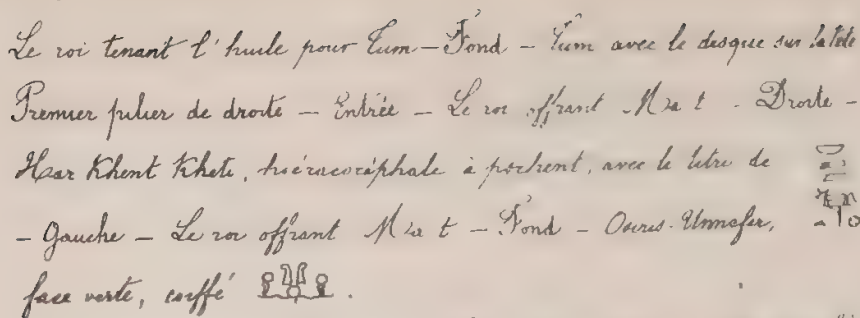 Le roi tenant l'huile pour Tum — Fond — Tum avec le disque sur la tête
Premier pilier de droite — Entrée — Le roi offrant Ma t - Droite -
Haar Khent Kheti, hiéracocéphale à pschent, avec le titre de
- Gauche - Le roi offrant Ma t - Fond - Osiris-Unnefer,
face verte, coiffé